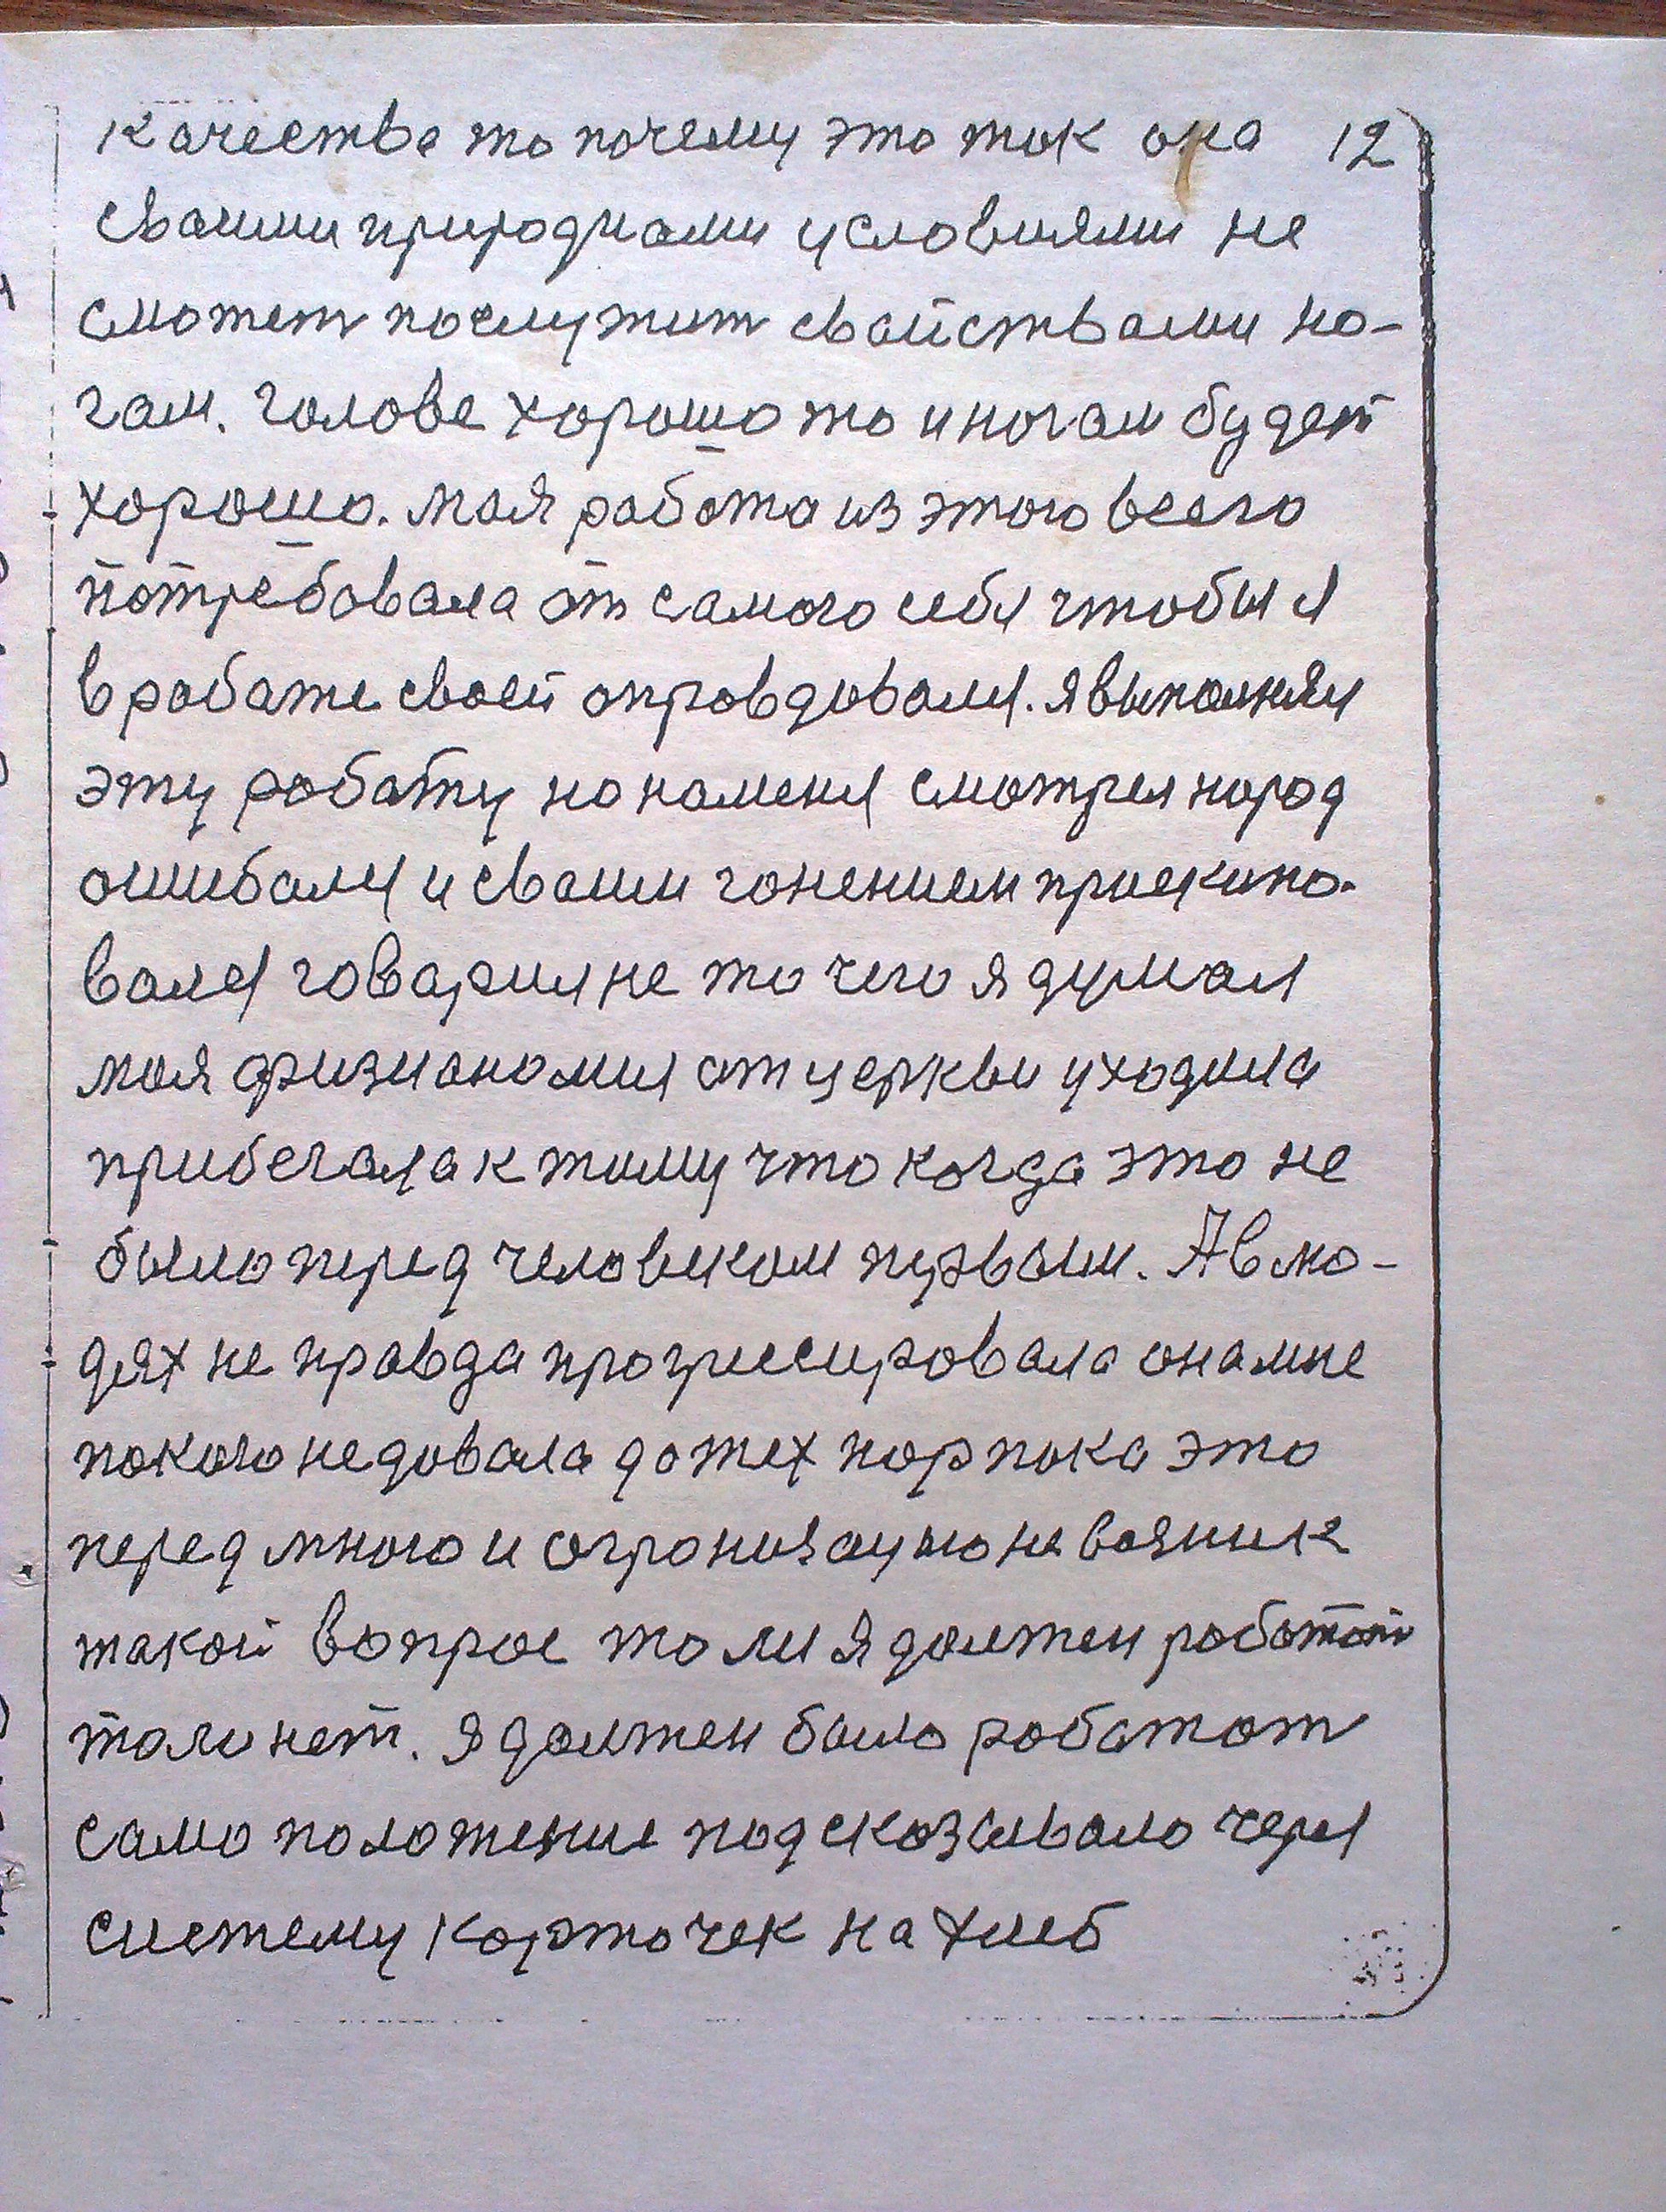 качества то почему это ток она 12
сваими природнами условиями не
сможет послужит свайствами но-
гам. голове хорошо то и ногам будет
хорошо. моя работа из этого всего
потребовала от самого себя чтобы я
в работе своей оправдовался. я выполнял
эту работу но на меня смотрел народ
ошибался и сваим гонением приекипо-
вался говарил не то чего я думал
моя физианомия от церквы уходила
прибегала к тому что когда это не
было перед человеком первым. А в лю-
дях не правда прогрессировала она мне
покого не довала до тех пор пока это
перед много и огронизацыю не возник
такой вопрос то ли я должен работат
толи нет. я должен было работат
само положение подсказывало через
систему корточек на хлеб